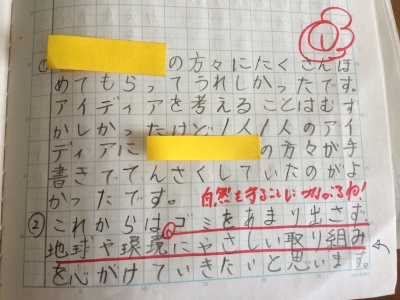 ①
① の方々にたくさんほ
めてもらってうれしかったです。
アイディアを考えることはむず
かしかったけど1人1人のアイ
ディアに の方々が手
書きでてんさくしていたのがよ
かったです。 自然を守ることにつながるね!
②これからはゴミをあまり出さず、
地球や環境にやさしい取り組み
を心がけていきたいと思います。